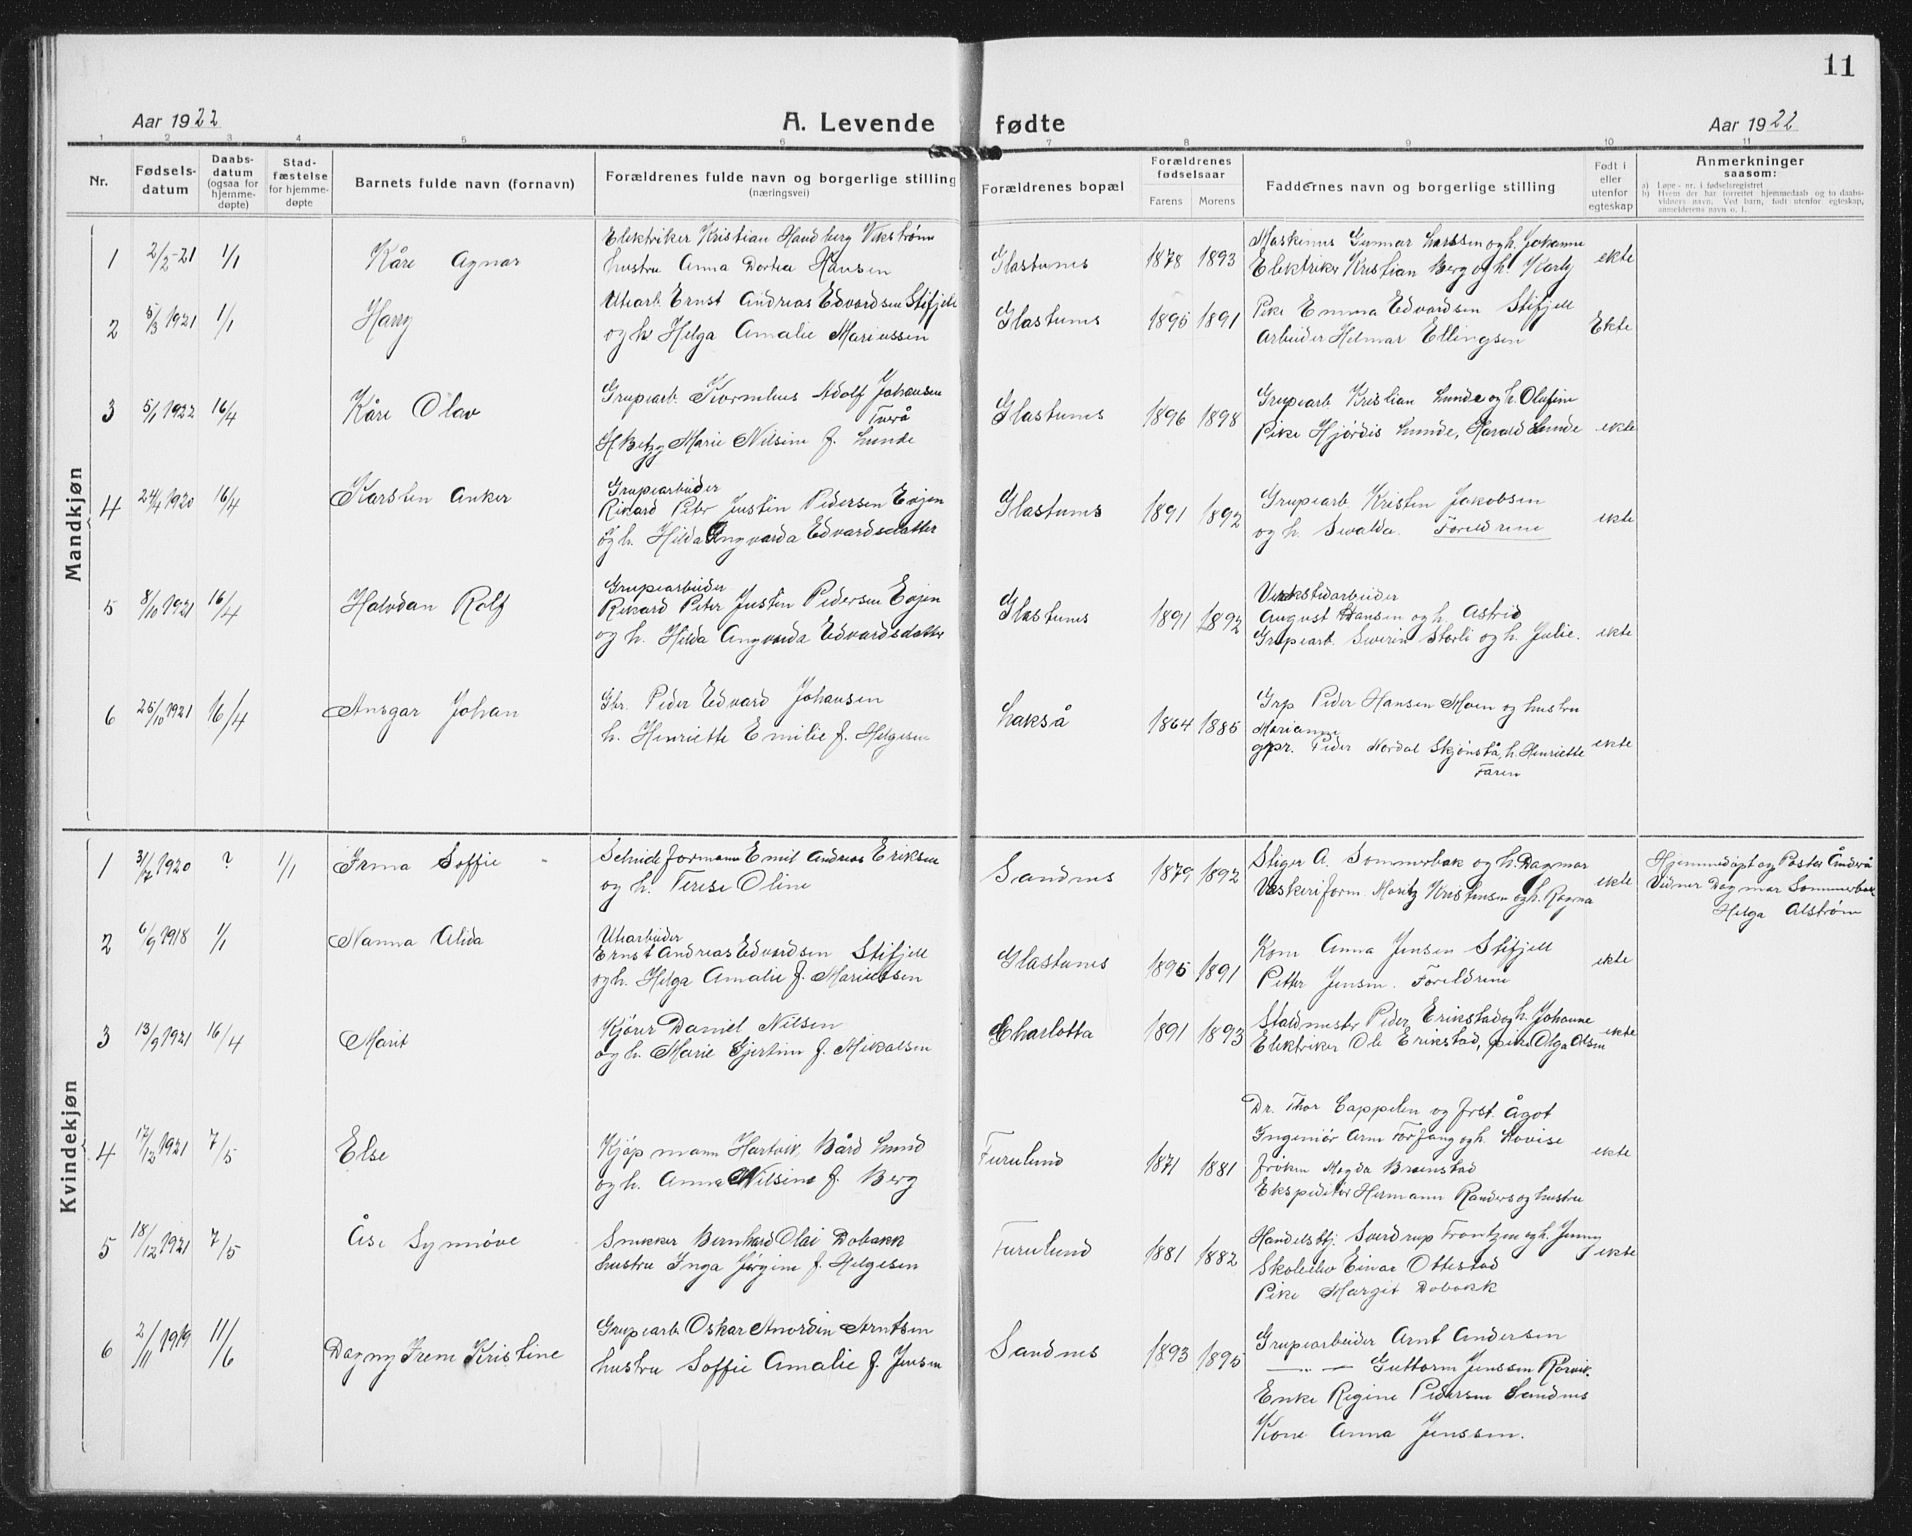 11
Aar 1922 A. Levende fødte Aar 1922
1 2 3 4 5 6 7 8 9 10 11
Nr. Fødsels-datum Daabs-datum (ogsaa for hjemme-døpte) Stad-fæstelse for hjemme-døpte Barnets fulde navn (fornavn) Forældrenes fulde navn og borgerlige stilling (næringsvei) Forældrenes bopæl Forældrenes fødselsaar Farens Morens Faddernes navn og borgerlige stilling Født i eller utenfor egteskap Anmerkninger saasom:
a) Løpe-nr. i fødselsregistret
b) Hvem der har forrettet hjemmedaab og to daabs-vidners navn. Ved barn, født utenfor egteskap, anmelderens navn o. l.
Mandkjøn
Elektriker Kristian Handberg Vikstrøm
1 2/2-21 1/1 Kåre Agnar hustru Anna Dortea Hansen Glastunes 1878 1893 Maskinus Gunnar Larssen og h. Johanne
Elektriker Kristian Berg og h. Karly ekte
Utearb. Ernst Andreas Edvardsen Stifjell
2 5/3 1921 1/1 Harry og h. Helga Amalie Mariussen Glastunes 1895 1891 Pike Emma Edvardsen Stifjell
Arbeider Helmar Ellingsen Ekte
Grupearb. Kornelius Adolf Johansen
Tverå
3 5/1 1922 16/4 Kåre Olav H. Betzy Marie Nilsine f. Lunde Glastunes 1896 1898 Grupearb. Kristian Lunde og h. Olufine
Pike Hjørdis Lunde, Harald Lunde ekte
Grupearbeider
4 24/4 1920 16/4 Karsten Anker Rikard Peter Justin Pedersen Evjen
og h. Hilda Angvarda Edvardsdatter Glastunes 1891 1892 Grupearb. Kristen Jakobsen
og h. Sevalda. Foreldrene ekte
Grupearbeider
5 8/10 1921 16/4 Halvdan Rolf Rikard Peter Justin Pedersen Evjen
og h. Hilda Angvarda Edvardsdatter Glastunes 1891 1892 Verkstedarbeider
August Hansen og h. Astrid
Grupearb. Severin Storli og h. Julie. ekte
6 25/10 1921 16/4 Ansgar Johan Gbr. Peder Edvard Johansen
h. Henriette Emilie f. Helgesen Lakså 1864 1885 Grp Peder Hansen Moen og hustru
Marianne
gpr. Peder Nordal Skjønstå, h. Henriette
Faren ekte
Kvindekjøn
1 31/7 1920 ? 1/1 Irma Soffie Scheideformann Emil Andreas Eriksen
og h. Terese Oline Sandnes 1879 1892 Stiger A. Sommerbak og h. Dagmar
Vaskeriform. Moritz Kristensen og h. Ragna ekte Hjemmedøpt av PastorÅnderå
Vidner Dagmar Sommerbak
Helga Alstrøm
Utearbeider
2 6/9 1918 1/1 Nanna Alida Ernst Andreas Edvardsen Stifjell
og h. Helga Amalie f. Mariussen Glastunes 1895 1891 Kone Anna Jensen Stifjell
Petter Jensen. Foreldrene ekte
3 13/9 1921 16/4 Marit Kjører Daniel Nilsen
og h. Marie Gjertine f. Mikalsen Charlotta 1891 1893 Staldmester Peder Erikstad og h. Johanne
Elektriker Ole Erikstad, pike Olga Olsen ekte
4 17/12 1921 7/5 Else Kjøpmann Hartvik Bård Lund
og h. Anna Nilsine f. Berg Furulund 1871 1881 Dr. Thor Cappelen og frst. Ågot
Ingeniør Arne Forfang og h. Lovise
frøken Magda Brønstad
Ekspeditør Hermann Randers og hustru ekte
5 18/12 1921 7/5 Åse Synnøve Snekker Bernhard Olai Dobakk
hustru Inga Jørgine f. Helgesen Furulund 1881 1882 Handelsbtj. Sverdrup Frantzen og h. Jenny
Skoleelev Einar Ottestad
Pike Margit Dobakk ekte
6 2/11 1919 11/6 Dagny Irene Kristine Grupearb. Oskar Anordin Arntsen
hustru Soffie Amalie f. Jensen Sandnes 1893 1895 Grupearbeider Arnt Andersen
— " — Guttorm Jenssen Rørvik.
Enke Regine Pedersen Sandnes
Kone Anna Jenssen.